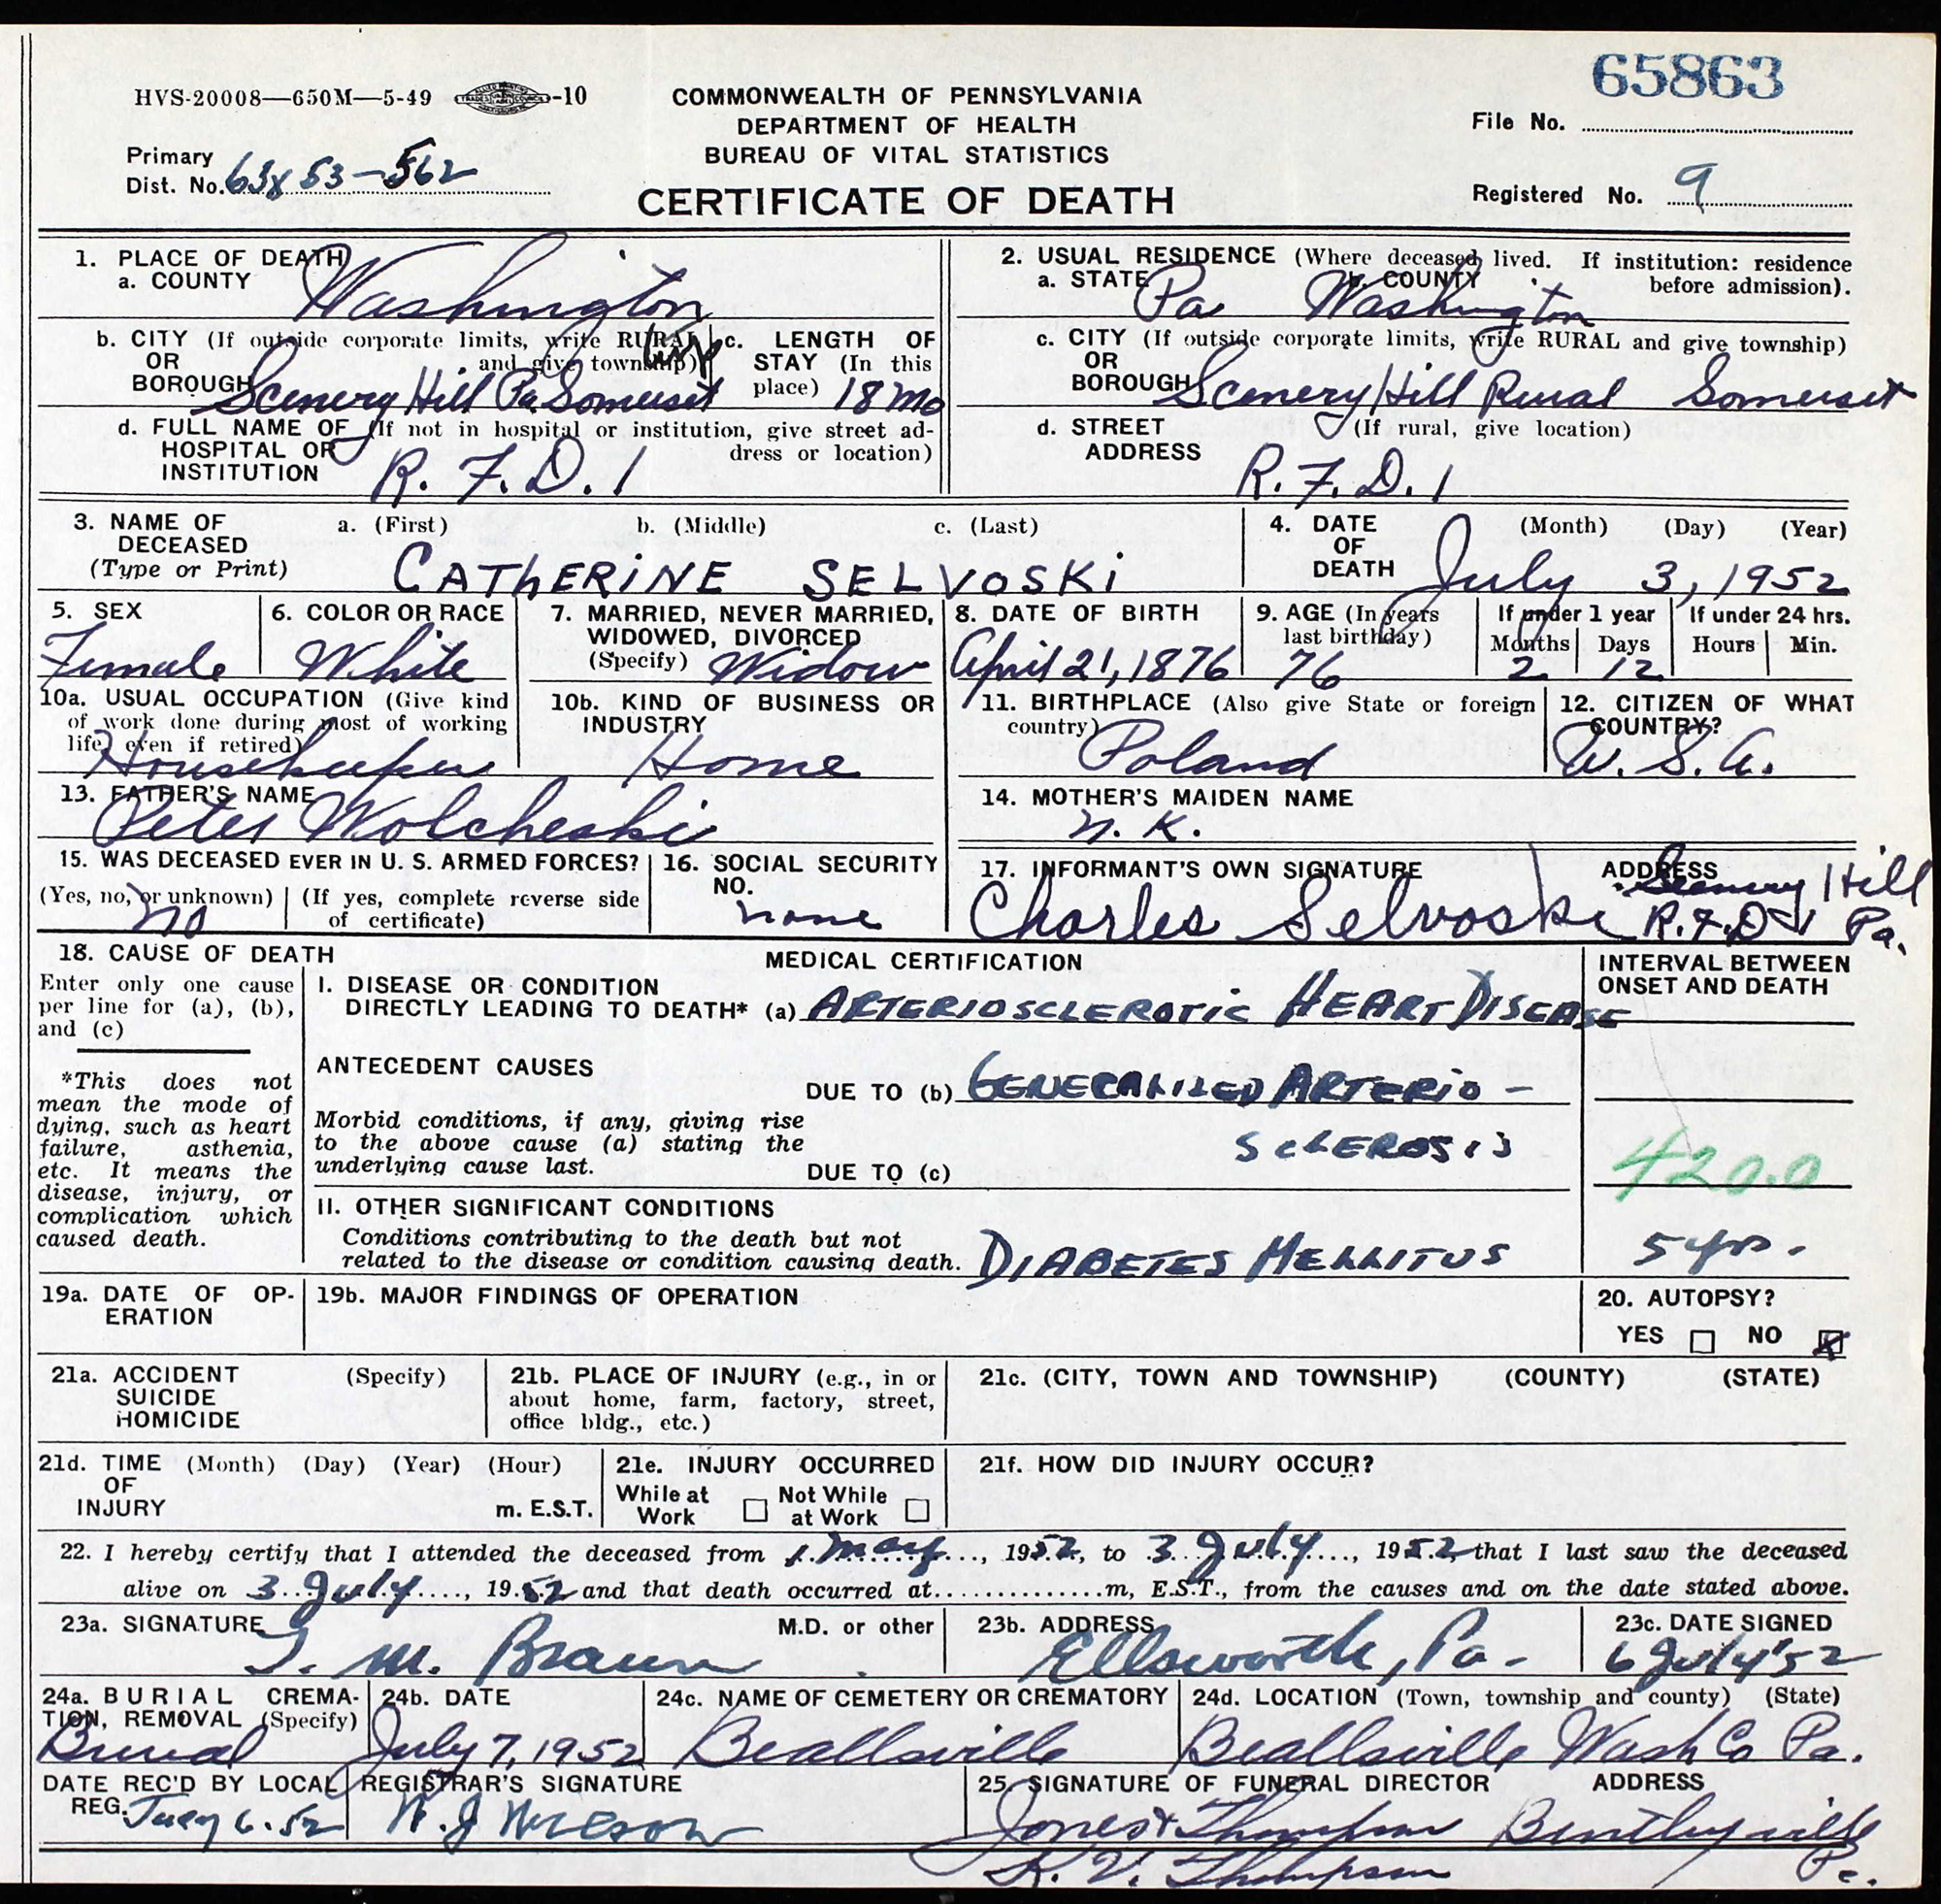 65863
HVS-20008—650M—5-49 -10
COMMONWEALTH OF PENNSYLVANIA
DEPARTMENT OF HEALTH
BUREAU OF VITAL STATISTICS
CERTIFICATE OF DEATH
File No.
Primary
Dist. No. 63X53-562
Registered No. 9
1. PLACE OF DEATH
a. COUNTY Washington
b. CITY (If outside corporate limits, write RURAL
OR and give township)
BOROUGH Scenery Hill Pa Somerset twp
c. LENGTH OF
STAY (In this
place) 18 mo
d. FULL NAME OF (If not in hospital or institution, give street ad-
HOSPITAL OR dress or location)
INSTITUTION R.F.D. 1
2. USUAL RESIDENCE (Where deceased lived. If institution: residence
a. STATE Pa b. COUNTY Washington before admission).
c. CITY (If outside corporate limits, write RURAL and give township)
OR
BOROUGH Scenery Hill Rural Somerset
d. STREET (If rural, give location)
ADDRESS R.F.D. 1
3. NAME OF a. (First) b. (Middle) c. (Last)
DECEASED
(Type or Print) CATHERINE SELVOSKI
4. DATE (Month) (Day) (Year)
OF
DEATH July 3, 1952
5. SEX
Female
6. COLOR OR RACE
White
7. MARRIED, NEVER MARRIED,
WIDOWED, DIVORCED
(Specify) Widow
8. DATE OF BIRTH
April 21, 1876
9. AGE (In years
last birthday)
76
If under 1 year
Months Days
2 12
If under 24 hrs.
Hours Min.
10a. USUAL OCCUPATION (Give kind
of work done during most of working
life, even if retired)
Housekeeper
10b. KIND OF BUSINESS OR
INDUSTRY
Home
11. BIRTHPLACE (Also give State or foreign
country)
Poland
12. CITIZEN OF WHAT
COUNTRY?
U.S.A.
13. FATHER'S NAME
Peter Wolcheski
14. MOTHER'S MAIDEN NAME
N.K.
15. WAS DECEASED EVER IN U. S. ARMED FORCES?
(Yes, no, or unknown) (If yes, complete reverse side
of certificate)
no
16. SOCIAL SECURITY
NO.
none
17. INFORMANT'S OWN SIGNATURE ADDRESS
Charles Selvoski Scenery Hill
R.F.D 1 Pa.
18. CAUSE OF DEATH
Enter only one cause
per line for (a), (b),
and (c)
*This does not
mean the mode of
dying, such as heart
failure, asthenia,
etc. It means the
disease, injury, or
complication which
caused death.
MEDICAL CERTIFICATION
I. DISEASE OR CONDITION
DIRECTLY LEADING TO DEATH* (a) ARTERIOSCLEROTIC HEART DISEASE
ANTECEDENT CAUSES
DUE TO (b) GENERALIZED ARTERIO-
Morbid conditions, if any, giving rise
to the above cause (a) stating the
SCLEROSIS
underlying cause last.
DUE TO (c)
II. OTHER SIGNIFICANT CONDITIONS
Conditions contributing to the death but not
related to the disease or condition causing death. DIABETES MELLITUS
INTERVAL BETWEEN
ONSET AND DEATH
420.0
5 yrs.
19a. DATE OF OP-
ERATION
19b. MAJOR FINDINGS OF OPERATION
20. AUTOPSY?
YES NO X
21a. ACCIDENT (Specify)
SUICIDE
HOMICIDE
21b. PLACE OF INJURY (e.g., in or
about home, farm, factory, street,
office bldg., etc.)
21c. (CITY, TOWN AND TOWNSHIP) (COUNTY) (STATE)
21d. TIME (Month) (Day) (Year) (Hour)
OF
INJURY m. E.S.T.
21e. INJURY OCCURRED
While at Not While
Work at Work
21f. HOW DID INJURY OCCUR?
22. I hereby certify that I attended the deceased from 1 May, 1952, to 3 July, 1952, that I last saw the deceased
alive on 3 July, 1952 and that death occurred at m, E.S.T., from the causes and on the date stated above.
23a. SIGNATURE M.D. or other
M. Braun
23b. ADDRESS
Ellsworth, Pa.
23c. DATE SIGNED
6 July '52
24a. BURIAL CREMA-
TION, REMOVAL (Specify)
Burial
24b. DATE
July 7, 1952
24c. NAME OF CEMETERY OR CREMATORY
Beallsville
24d. LOCATION (Town, township and county) (State)
Beallsville Wash Co Pa.
DATE REC'D BY LOCAL
REG. July 6.52
REGISTRAR'S SIGNATURE
25. SIGNATURE OF FUNERAL DIRECTOR ADDRESS
Jones & Thompson Bentleyville
K. V. Thompson Pa.